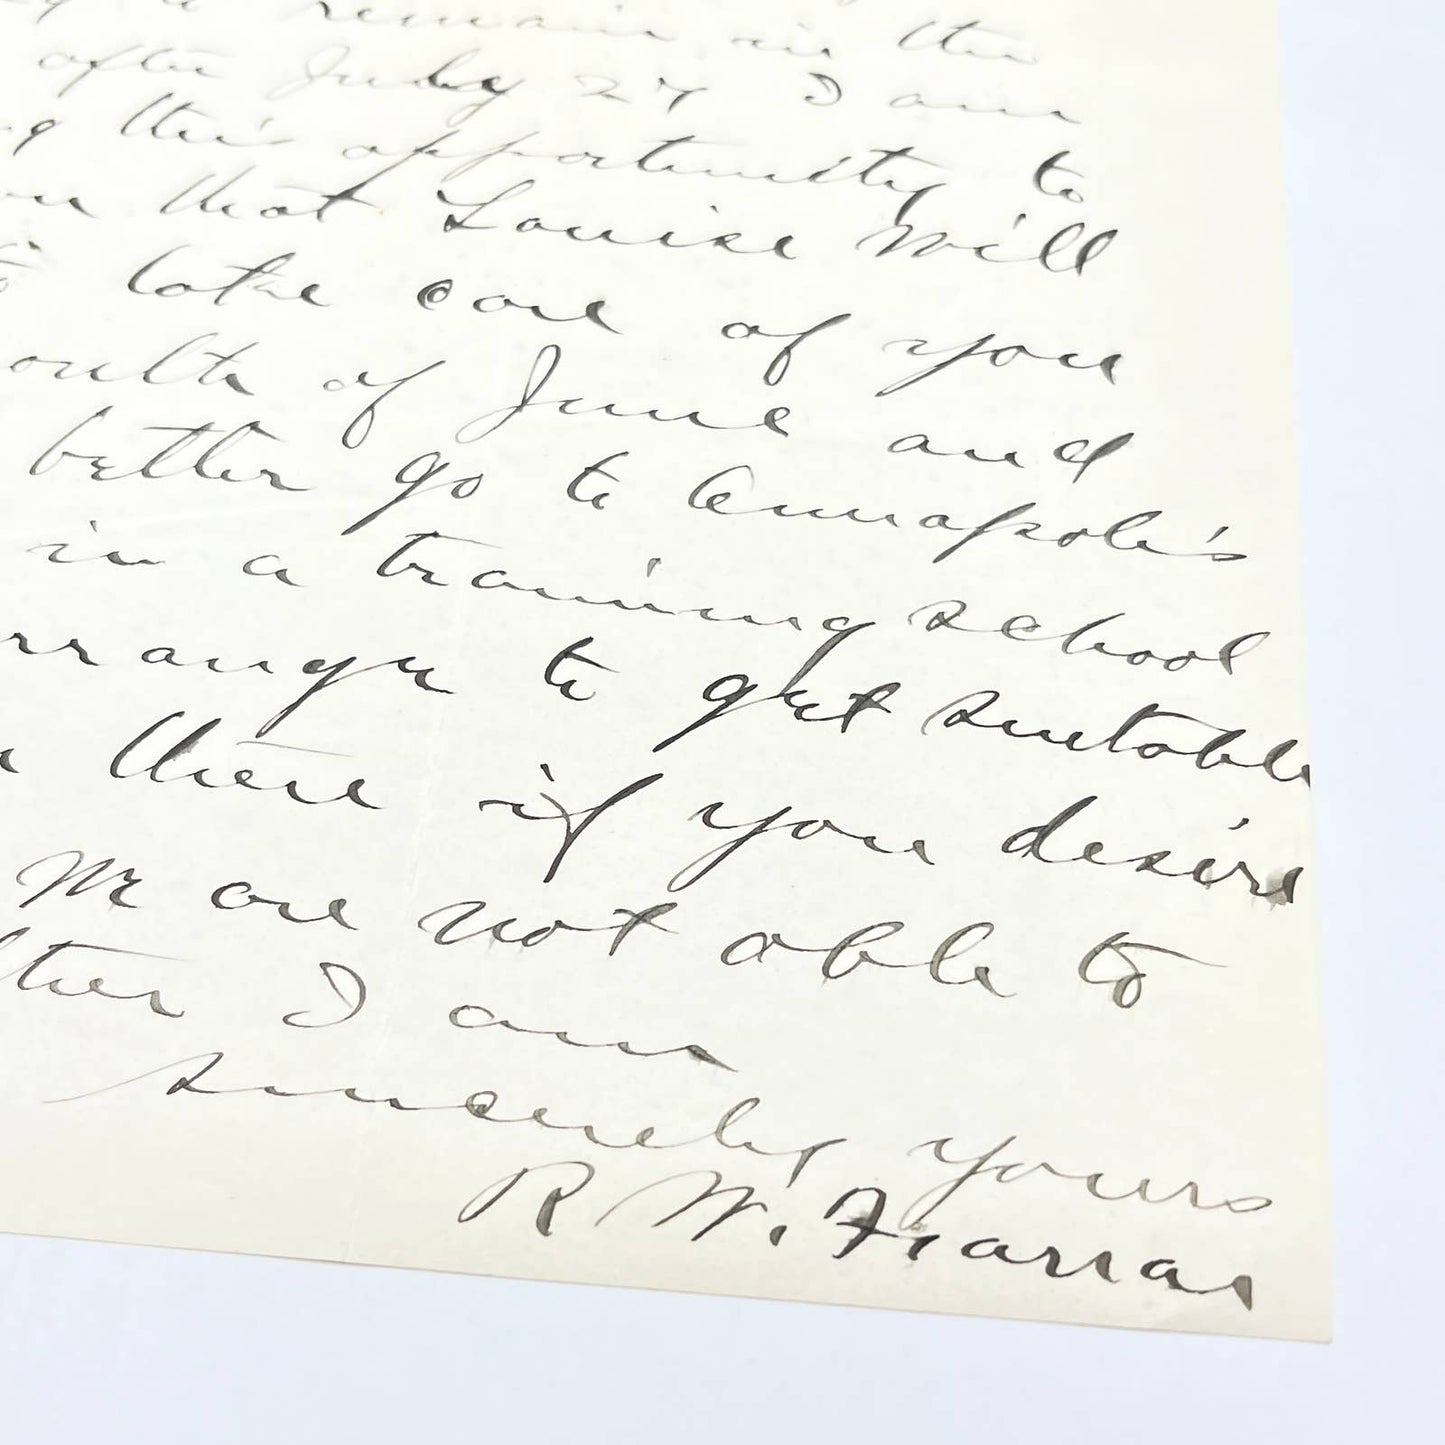 remain in the
after July 27 I am
this opportunity to
that Louise will
to take care of you
of June and
better go to Annapolis
in a training school
arrange to get suitable
there if you desire
We are not able to
I am
sincerely yours
R W.